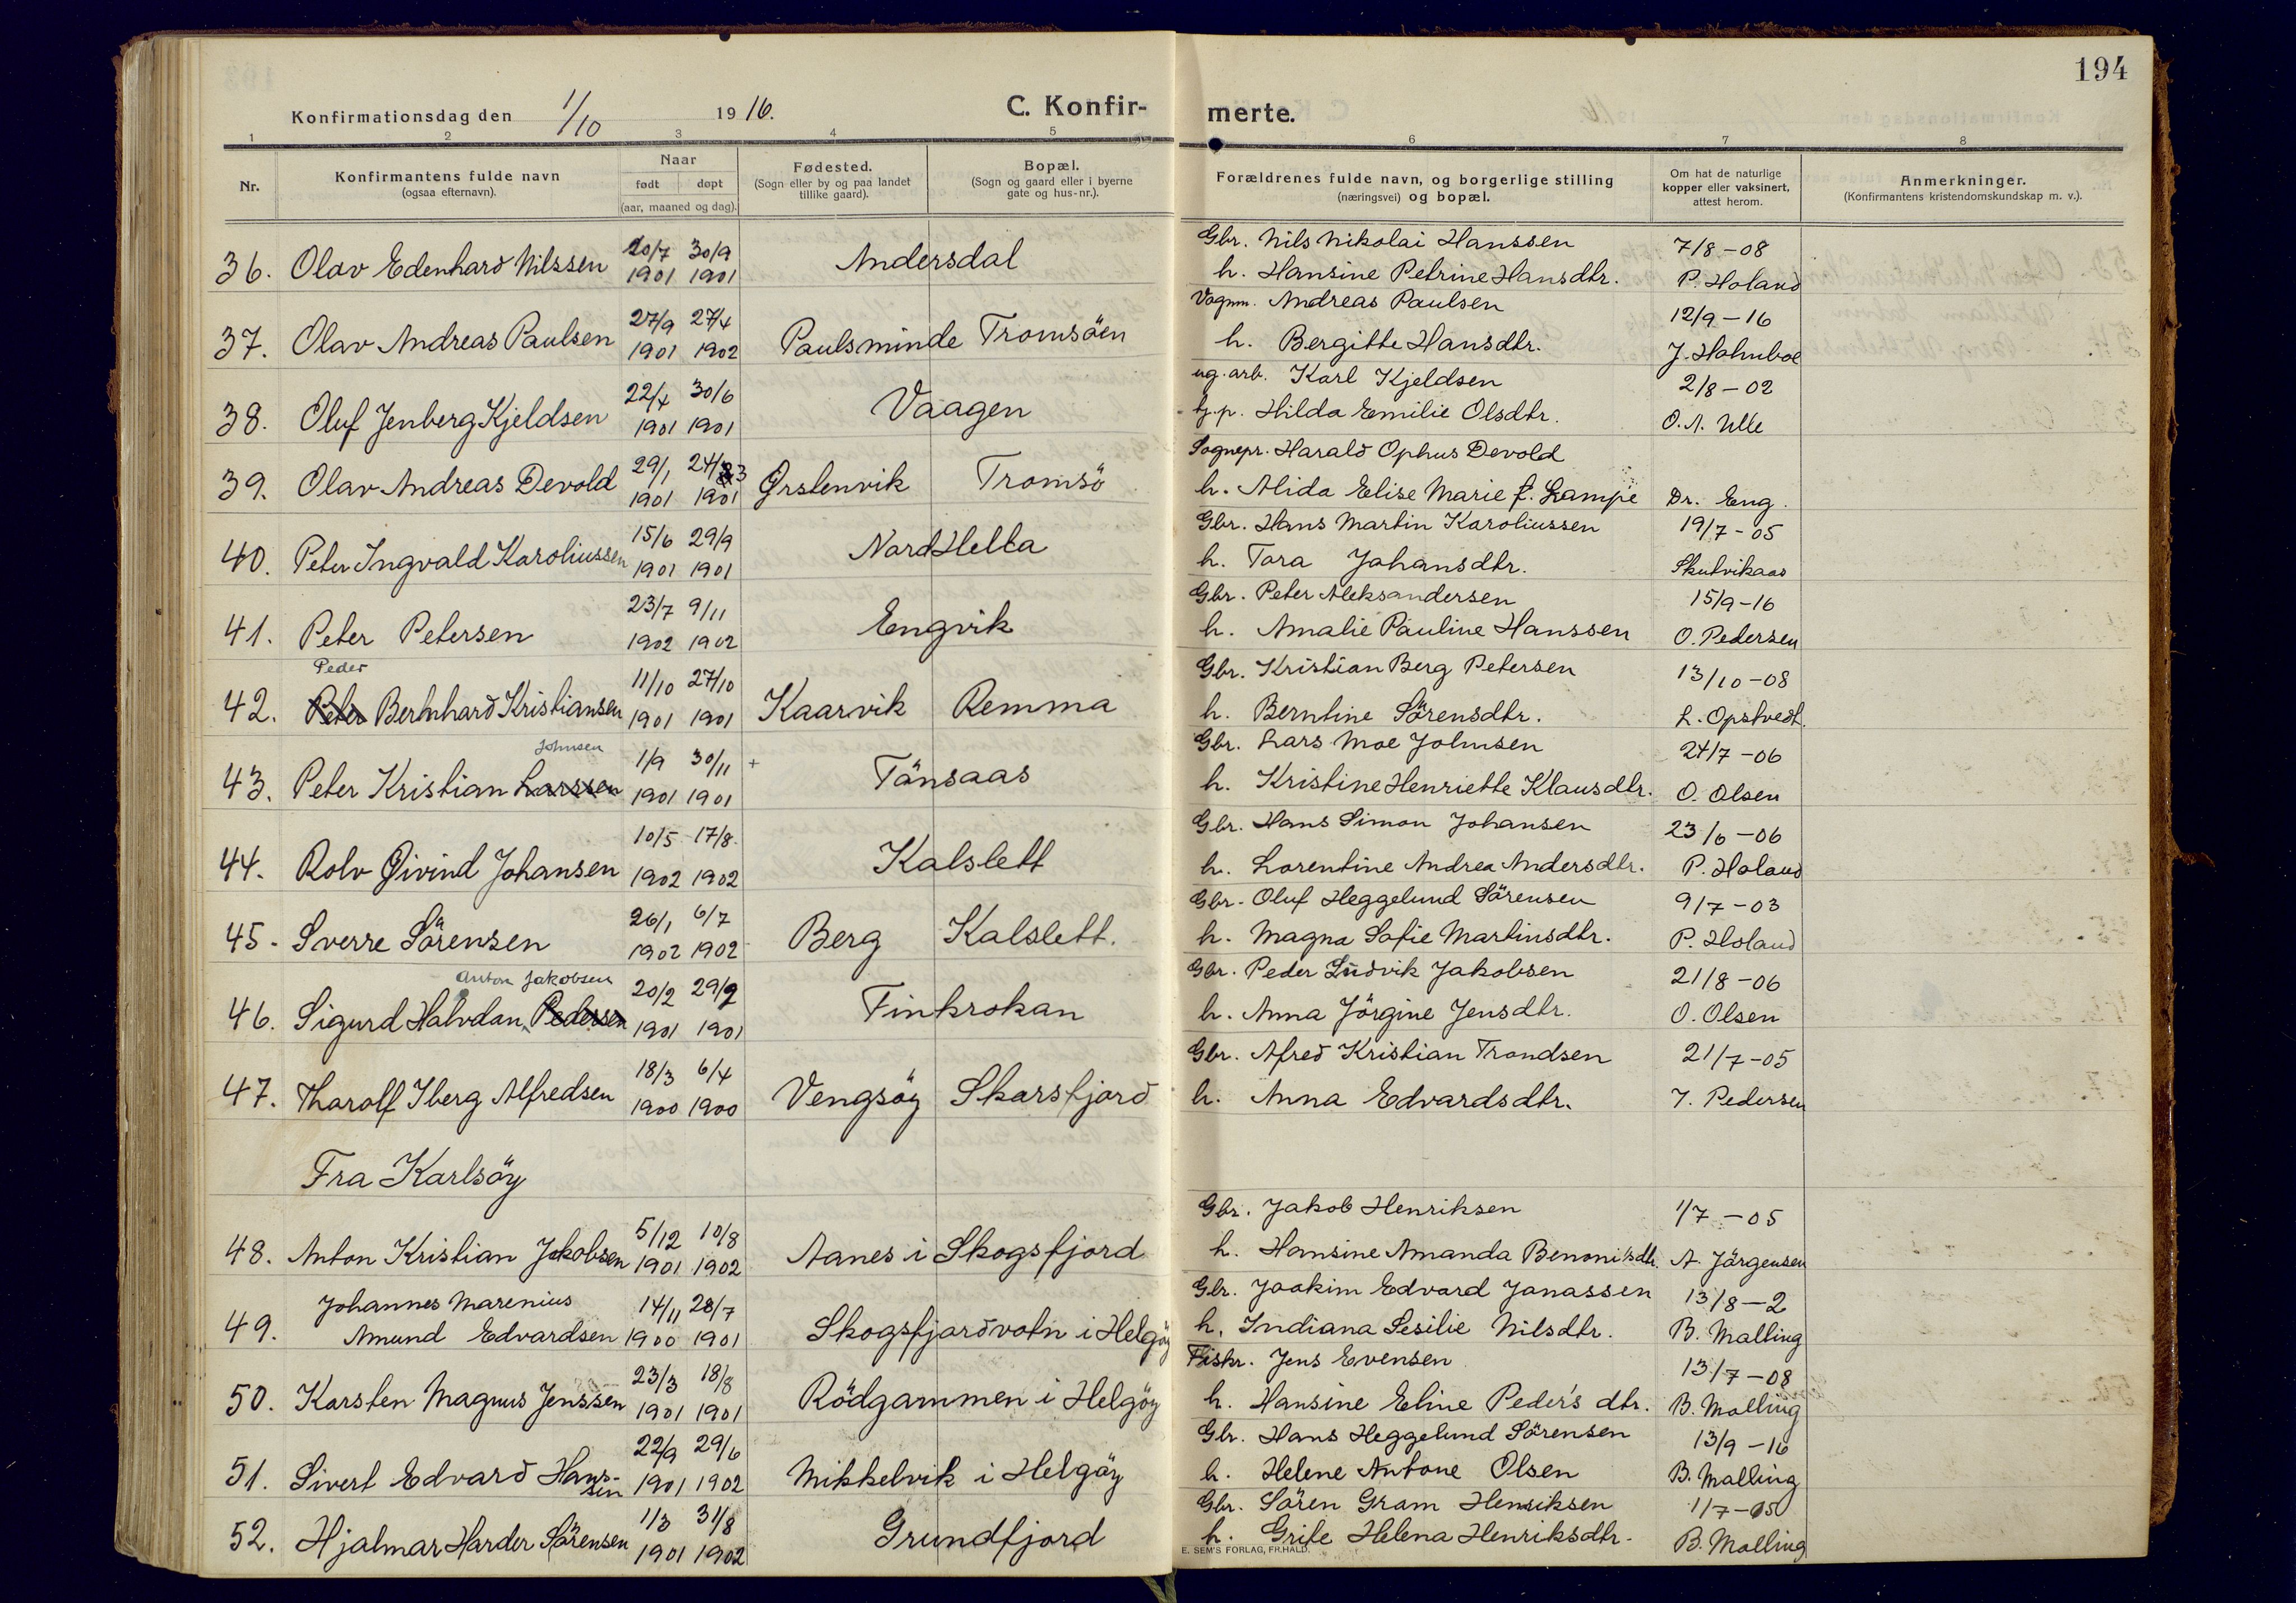 194
Konfirmationsdag den 1/10 1916. C. Konfirmerte.
1 2 3 4 5 6 7 8
Nr.
Konfirmantens fulde navn
(ogsaa efternavn).
Naar
født døpt
(aar, maaned og dag).
Fødested.
(Sogn eller by og paa landet
tillike gaard).
Bopæl.
(Sogn og gaard eller i byerne
gate og hus-nr.).
Forældrenes fulde navn, og borgerlige stilling
(næringsvei) og bopæl.
Om hat de naturlige
kopper eller vaksinert,
attest herom.
Anmerkninger.
(Konfirmantens kristendomskundskap m. v.).
20/7 30/9 Gbr. Nils Nikolai Hanssen 7/8-08
36. Olav Edenhard Nilssen 1901 1901 Andersdal h. Hansine Petrine Hansdtr. P. Holand
27/9 27/4 Vognm. Andreas Paulsen 12/9-16
37. Olav Andreas Paulsen 1901 1902 Paulsminde Tromsöen h. Bergitte Hansdtr. J. Holmboe
22/4 30/6 ug. arb. Karl Kjeldsen 2/8-02
38. Oluf Jenberg Kjeldsen 1901 1901 Vaagen tj.p. Hilda Emilie Olsdtr. O. A. Ulle
29/1 24/3 Sognepr. Harald Ophus Devold
39. Olav Andreas Devold 1901 1901 Ørstenvik Tromsö h. Alida Elise Marie f. Lampe Dr. Eng.
15/6 29/9 Gbr. Hans Martin Karoliussen 19/7-05
40. Peter Ingvald Karoliussen 1901 1901 Nord Hella h. Tora Johansdtr. Skutvikaas
23/7 9/11 Gbr. Peter Aleksandersen 15/9-16
41. Peter Petersen 1902 1902 Engvik h. Amalie Pauline Hanssen O. Pedersen
Peder 11/10 27/10 Gbr. Kristian Berg Petersen 13/10-08
42. Peter Bernhard Kristiansen 1901 1901 Kaarvik Remma h. Berntine Sörensdtr. L. Opstvedt.
Johnsen 1/9 30/11 + Gbr. Lars Moe Johnsen 24/7-06
43. Peter Kristian Larssen 1901 1901 Tönsaas h. Kristine Henriette Klausdtr. O. Olsen
10/5 17/8 Gbr. Hans Simon Johansen 23/6-06
44. Rolv Øivind Johansen 1902 1902 Kalslett h. Lorentine Andrea Andersdtr. P. Holand
26/1 6/7 Gbr. Oluf Heggelund Sörensen 9/7-03
45. Sverre Sörensen 1902 1902 Berg Kalslett. h. Magna Sofie Martinsdtr. P. Holand
Anton Jakobsen 20/2 29/9 Gbr. Peder Ludvik Jakobsen 21/8-06
46. Sigurd Halvdan Pedersen 1901 1901 Finkrokan h. Anna Jörgine Jensdtr. O. Olsen
18/3 6/4 Gbr. Alfred Kristian Trondsen 21/7-05
47. Tharolf Iberg Alfredsen 1900 1900 Vengsöy Skarsfjord h. Anna Edvardsdtr. J. Pedersen
Fra Karlsöy
5/12 10/8 Gbr. Jakob Henriksen 1/7-05
48. Anton Kristian Jakobsen 1901 1902 Aanes i Skogsfjord h. Hansine Amanda Benoni'sdtr. A. Jörgensen
Johannes Marenius 14/11 28/7 Gbr. Joakim Edvard Jonassen 13/8-2
49. Amund Edvardsen 1900 1901 Skogsfjordvotn i Helgöy h. Indiana Sesilie Nilsdtr. B. Malling
23/3 18/8 Fiskr. Jens Evensen 13/7-08
50. Karsten Magnus Jenssen 1901 1901 Rödgammen i Helgöy h. Hansine Eline Peder's dtr. B. Malling
22/9 29/6 Gbr. Hans Heggelund Sörensen 13/9-16
51. Sivert Edvard Hanssen 1901 1902 Mikkelvik i Helgöy h. Helene Antone Olsen B. Malling
1/3 31/8 Gbr. Sören Gram Henriksen 1/7-05
52. Hjalmar Harder Sörensen 1901 1902 Grundfjord h. Grite Helena Henriksdtr. B. Malling
E. SEM'S FORLAG, FR.HALD.